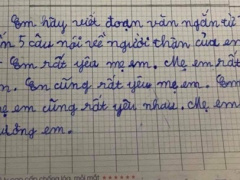 Em hãy viết đoạn văn ngắn từ
5 câu nói về người thân của em
Em rất yêu mẹ em. Mẹ em rất
Em cũng rất yêu mẹ em. Em
mẹ em cũng rất yêu nhau. Mẹ em
em.